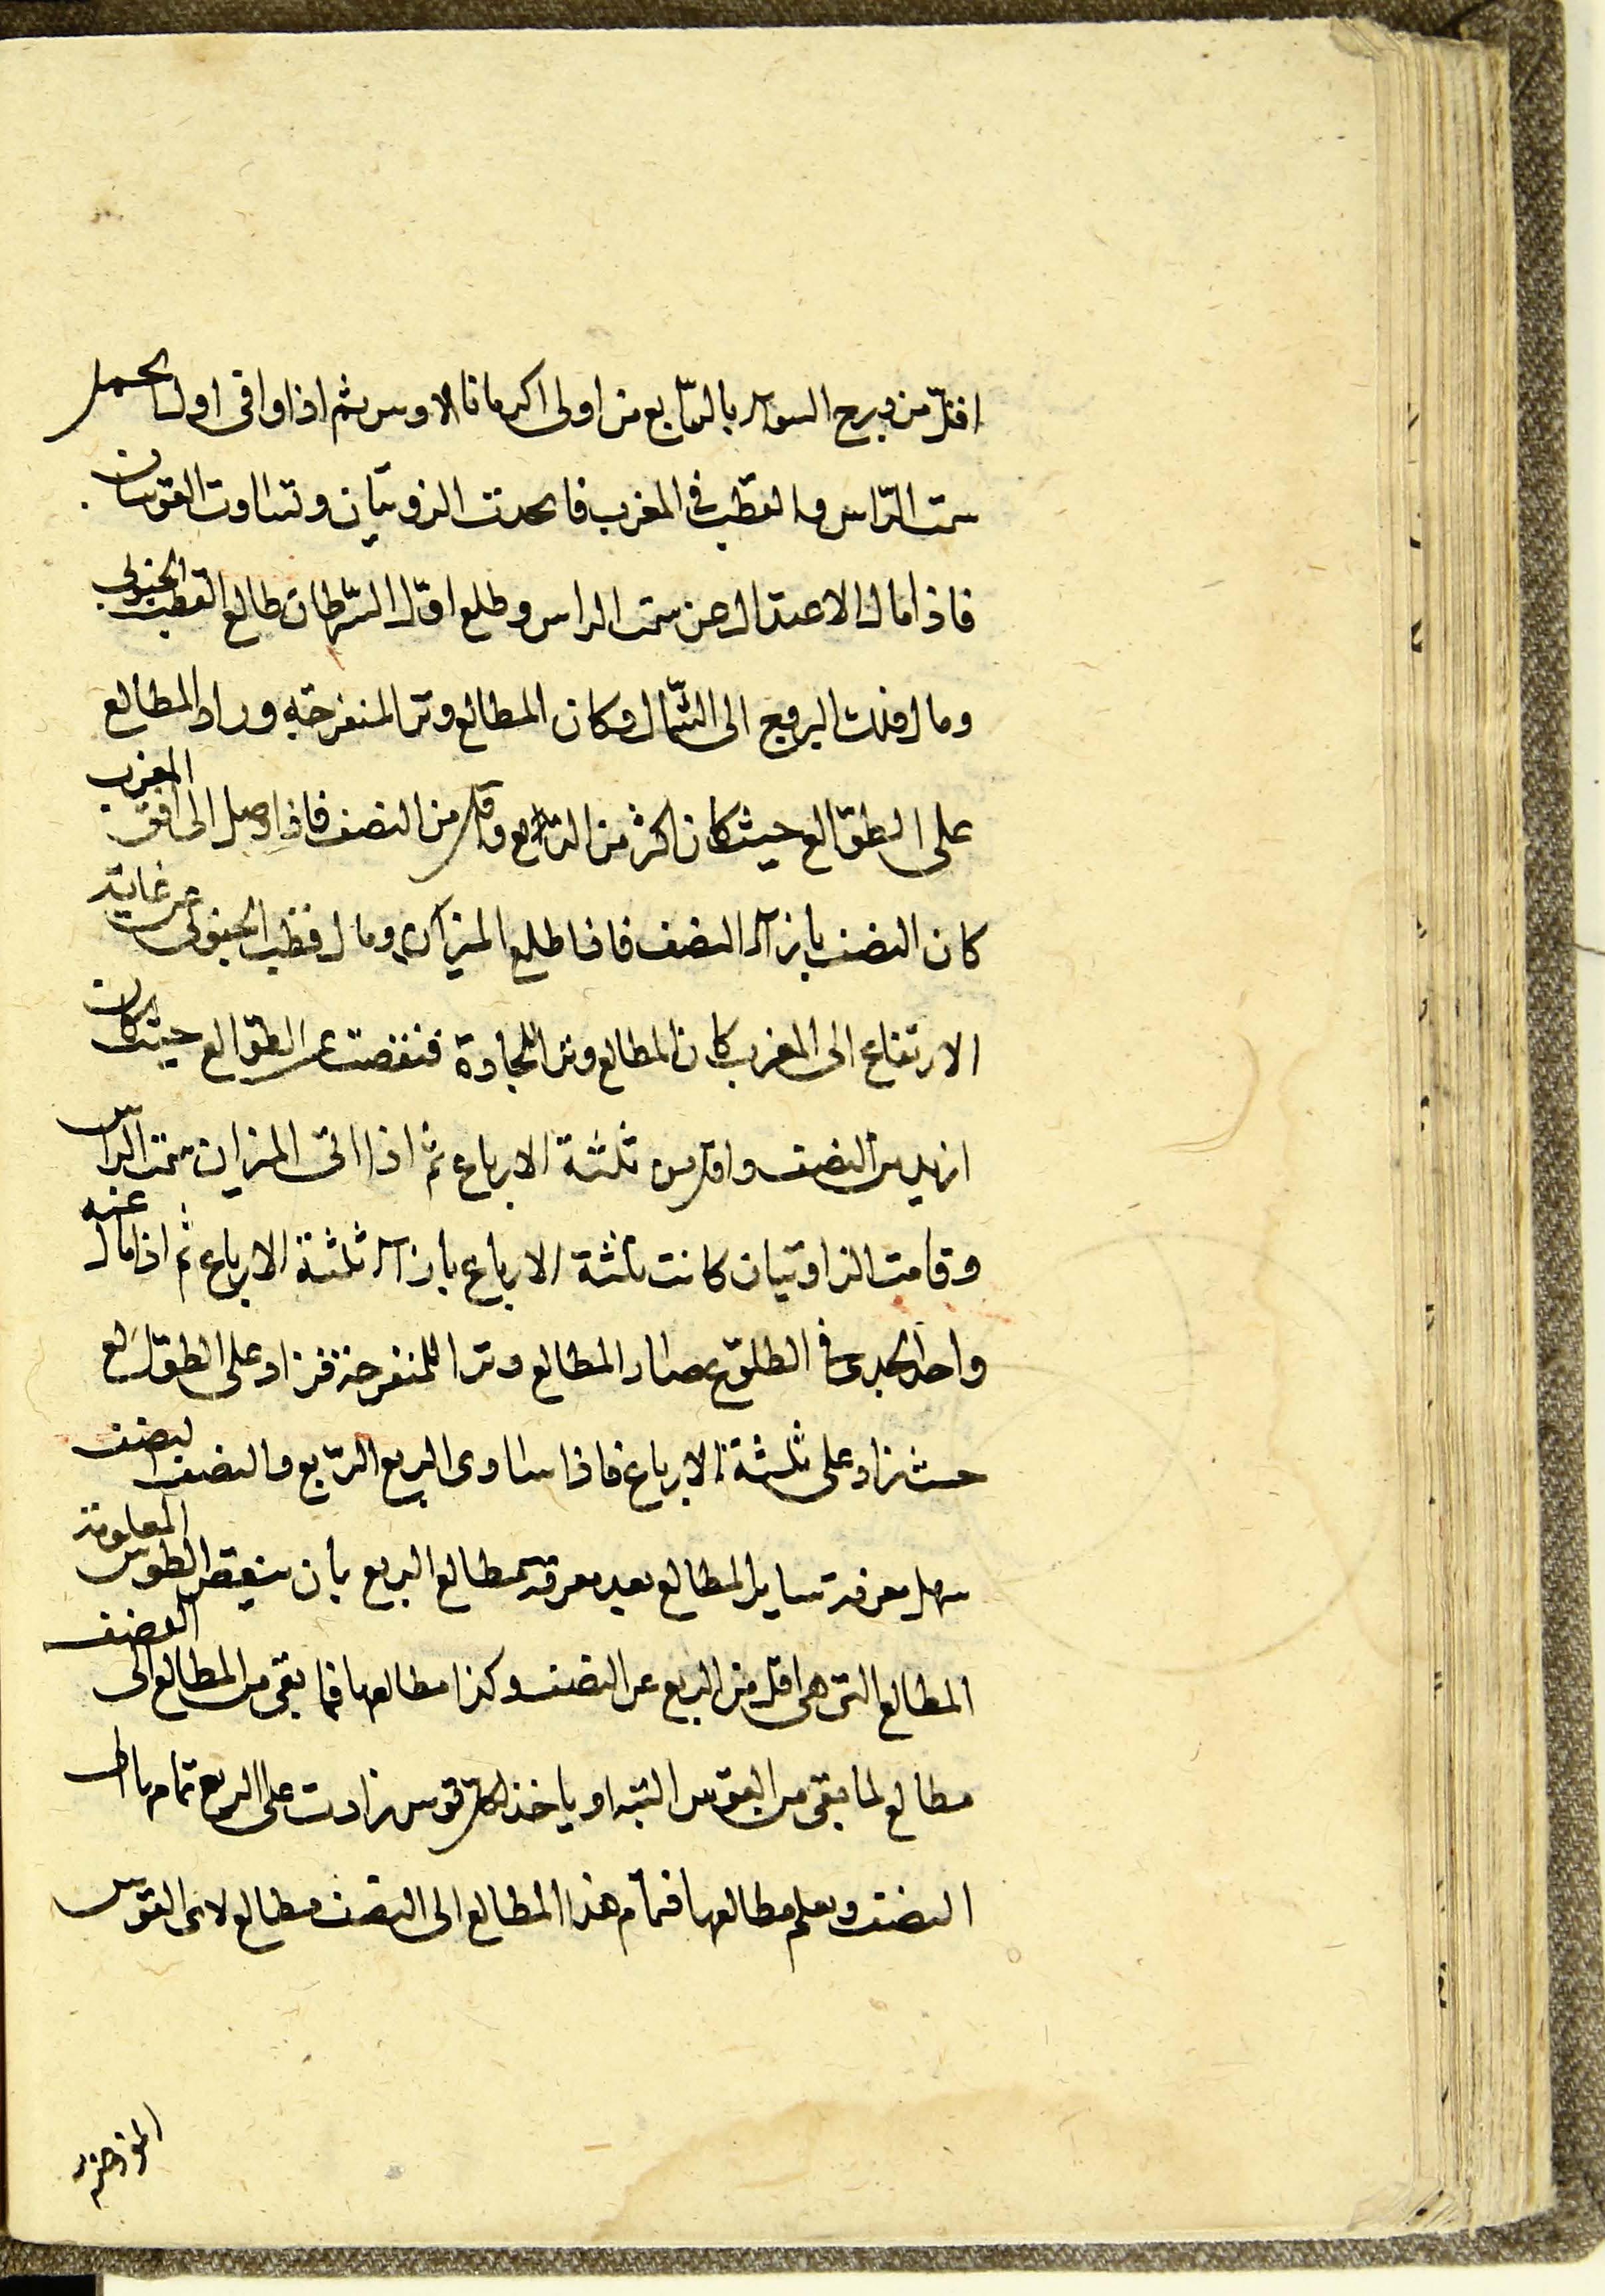 اقل من وبرح السواء بالرابع من اولى اكرمانالاوس ثم اذا وافى اول الحمل
سمت الراس والقطب فى المغرب فاتحدت الزويتان وتساوت القوسان
فاذا مال الاعتدال عن سمت الراس وطلع اوّل السّرطان طالع القطب الجنوبى
ومال فلك البروج الى الشّمال وكان المطالع وتر المنفرجة وزاد المطالع
على الطوّالع حيث كان اكثر من الرّبع واقل من النصف فاذا وصل الى افق المغرب
كان النصف بازآء النصف فاذا طلع الميزان ومال قطب الجنوبى عن غاية
الارتفاع الى المغرب كان المطالع وتر الحادة فنقصت عن الطوّالع حيث كان
ازيد من النصف واقل من ثلثة الارباع ثم اذا اتى الميزان سمت الراس
وقامت الزاويتان كانت ثلثة الارباع بازآء ثلثة الارباع ثم اذا مال عنه
واخذ الجدى فى الطلوع صار المطالع وترا للمنفرجة فزاد على الطوّالع
حيث زاد على ثلثة الارباع فاذا ساوى الربع الرّبع والنصف النصف
سهل معرفة ساير المطالع بعد معرفة مطالع الربع بان ينقص الطوس المعلومة
المطالع التى هى اقل من الربع عن النصف وكذا مطالعها فما بقى من المطالع الى النصف
مطالع لما بقى من القوس اليه او ياخذ لكل قوس زادت على الربع تمامها الى
النصف ويعلم مطالعها فتمام هذا المطالع الى النصف مطالع لاى القوس